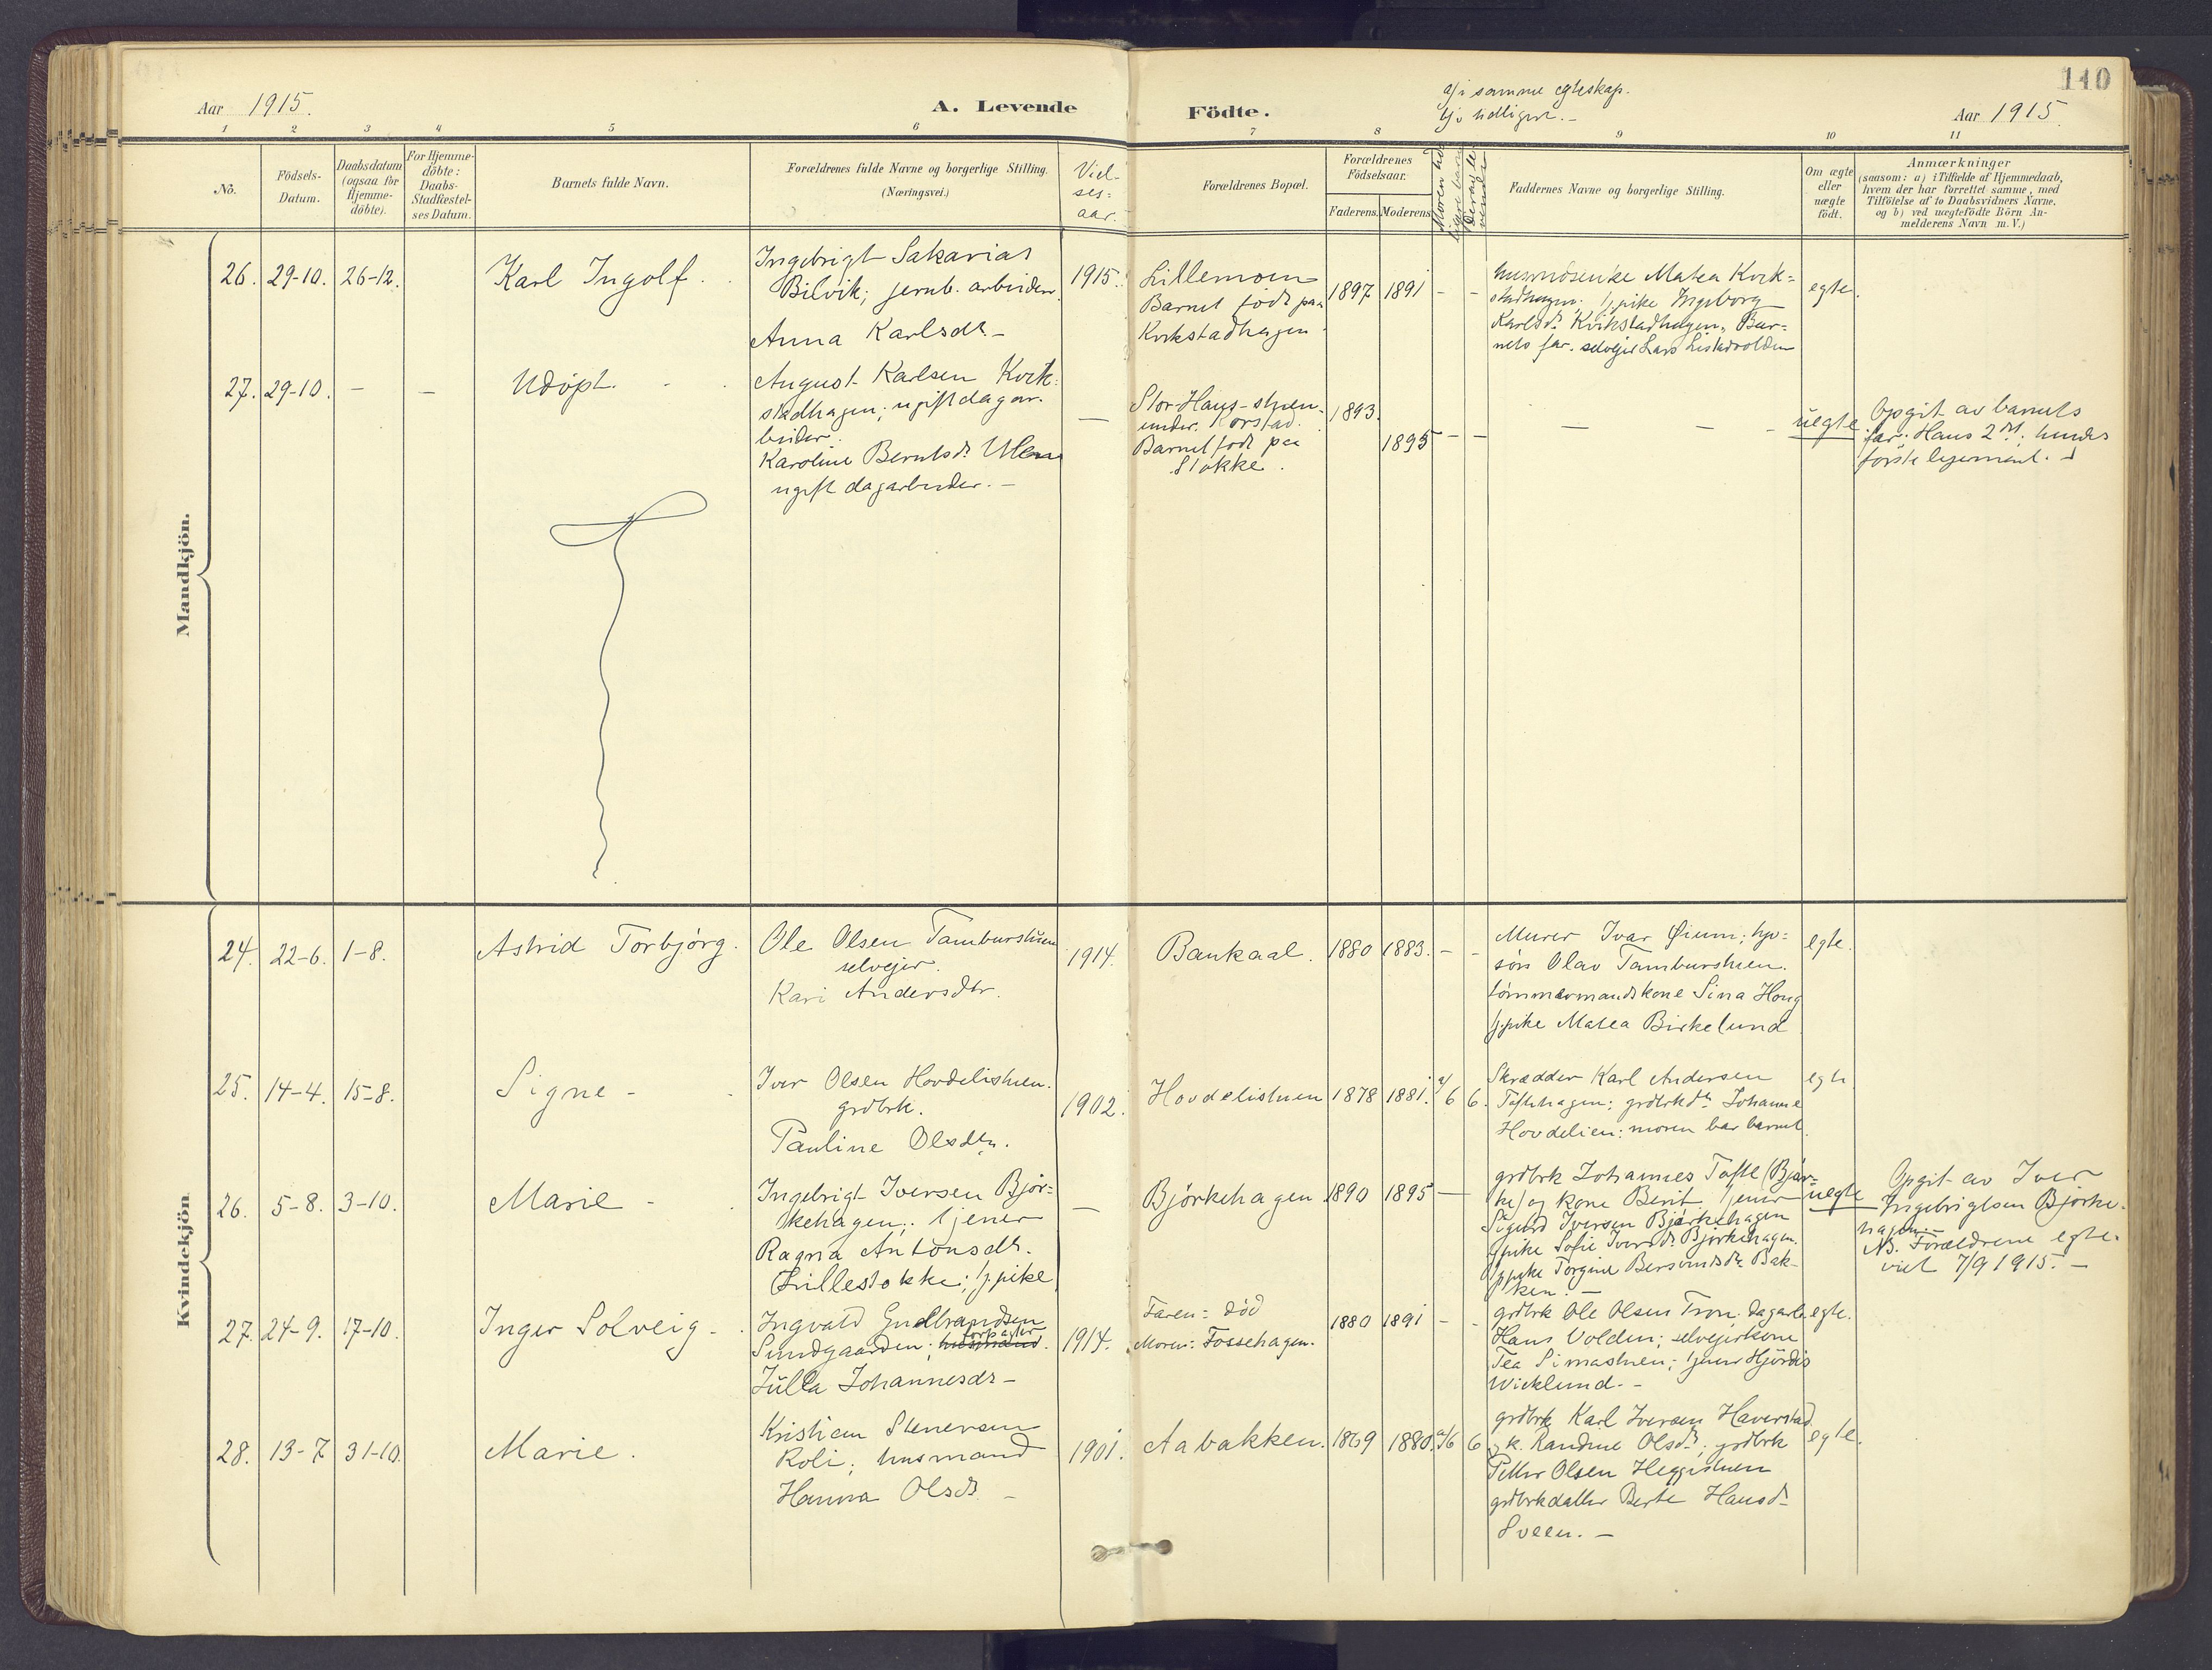 110
Aar 1915.
A. Levende
Födte.
a/ i samme egteskap.
b/ i tidligere. -
Aar 1915.
1 2 3 4 5 6 7 8 9 10 11
No.
Födsels-
Datum.
Daabsdatum
(ogsaa for
Hjemme-
döbte).
For Hjemme-
döbte:
Daabs-
Stadfæstel-
ses Datum.
Barnets fulde Navn.
Forældrenes fulde Navne og borgerlige Stilling.
(Næringsvei.)
Viel-
ses-
aar.
Forældrenes Bopæl.
Forældrenes
Födselsaar.
Faderens.
Moderens.
Faddernes Navne og borgerlige Stilling.
Om ægte
eller
uægte
födt.
Anmærkninger
(saasom: a) i Tilfælde af Hjemmedaab,
hvem der har forrettet samme, med
Tilföielse af to Daabsvidners Navne,
og b) ved uægtefödte Börn An-
melderens Navn m. V.)
Mandkjön.
26. 29-10. 26-12.
Karl Ingolf.
Ingebrigt Sakarias
Bilvik; jernb. arbeider.
Anna Karlsdr. -
1915.
Lillemoen
Barnet født paa
Kvikstadhagen
1897 1891 - -
husmdsenke Matea Kvik=
stadhagen; pike Ingeborg
Karlsdr. Kvikstadhagen, Bar=
nets far. selveier Lars Listadvolden
egte.
27. 29-10. - -
Udøpt.
August Karlsen Kvik=
stadhagen; ugift dagar-
beider.
Karoline Berntsdr. Ulen
ugift dagarbeider. -
-
Stor-Haug-stuen
under Korstad.
Barnet født paa
Stokke.
1893.
1895 - -
- - -
uegte.
Opgit av barnets
far; Hans 2det; hendes
første leiermaal. -
Kvindekjön
24. 22-6. 1-8.
Astrid Torbjørg.
Ole Olsen Tamburstuen
selveier.
Kari Andersdtr.
1914.
Bankaal.
1880 1883. - -
Murer Ivar Øium;
søn Olav Tamburstuen.
tømmermandskone Sina Haug
pike Matea Birkelund
egte.
25. 14-4. 15-8.
Signe -
Iver Olsen Hovdelistuen.
grdbrk.
Pauline Olsdtr.
1902.
Hovdelistuen
1878 1881. a/6 6.
Skrædder Karl Andersen
Toftehagen; grdbrkdtr. Johanne
Hovdelien; moren bar barnet.
egte
26. 5-8. 3-10.
Marie -
Ingebrigt Iversen Bjør=
kehagen; tjener
Ragna Antonsdtr.
Lillestokke; pike
-
Bjørkehagen
1890 1895 -
grdbrk Johannes Tofte (Bjør=
ke) og kone Berit, tjener
Sigurd Iversen Bjørkehagen
pike Sofie Iversdr. Bjørkehagen.
pike Torgine Bersvendsdr. Bak-
ken. -
uegte
Opgit av Iver
Ingebrigtsen Bjørke-
hagen. -
NB. Forældrene egte-
viet 7/9 1915. -
27. 24-9. 17-10.
Inger Solveig -
Ingvald Gudbrandsen
Sundgaarden; forpagter husmand.
Julla Johannesdr -
1914.
Faren: død
Moren: Fossehagen.
1880 1891 - -
grdbrk Ole Olsen Tron. dagarb.
Hans Volden; selveierkone
Tea Simastuen; tjener Hjørdis
Wicklund. -
egte.
28. 13-7 31-10.
Marie.
Kristian Stenersen
Roli; husmand
Hanna Olsdr -
1901.
Aabakken.
1869 1880. a/6 6
grdbrk Karl Iversen Haverstad
og k. Randine Olsdr; grdbrk
Petter Olsen Heggestuen
grdbrkdatter Berte Hansd-
Sveen. -
egte.